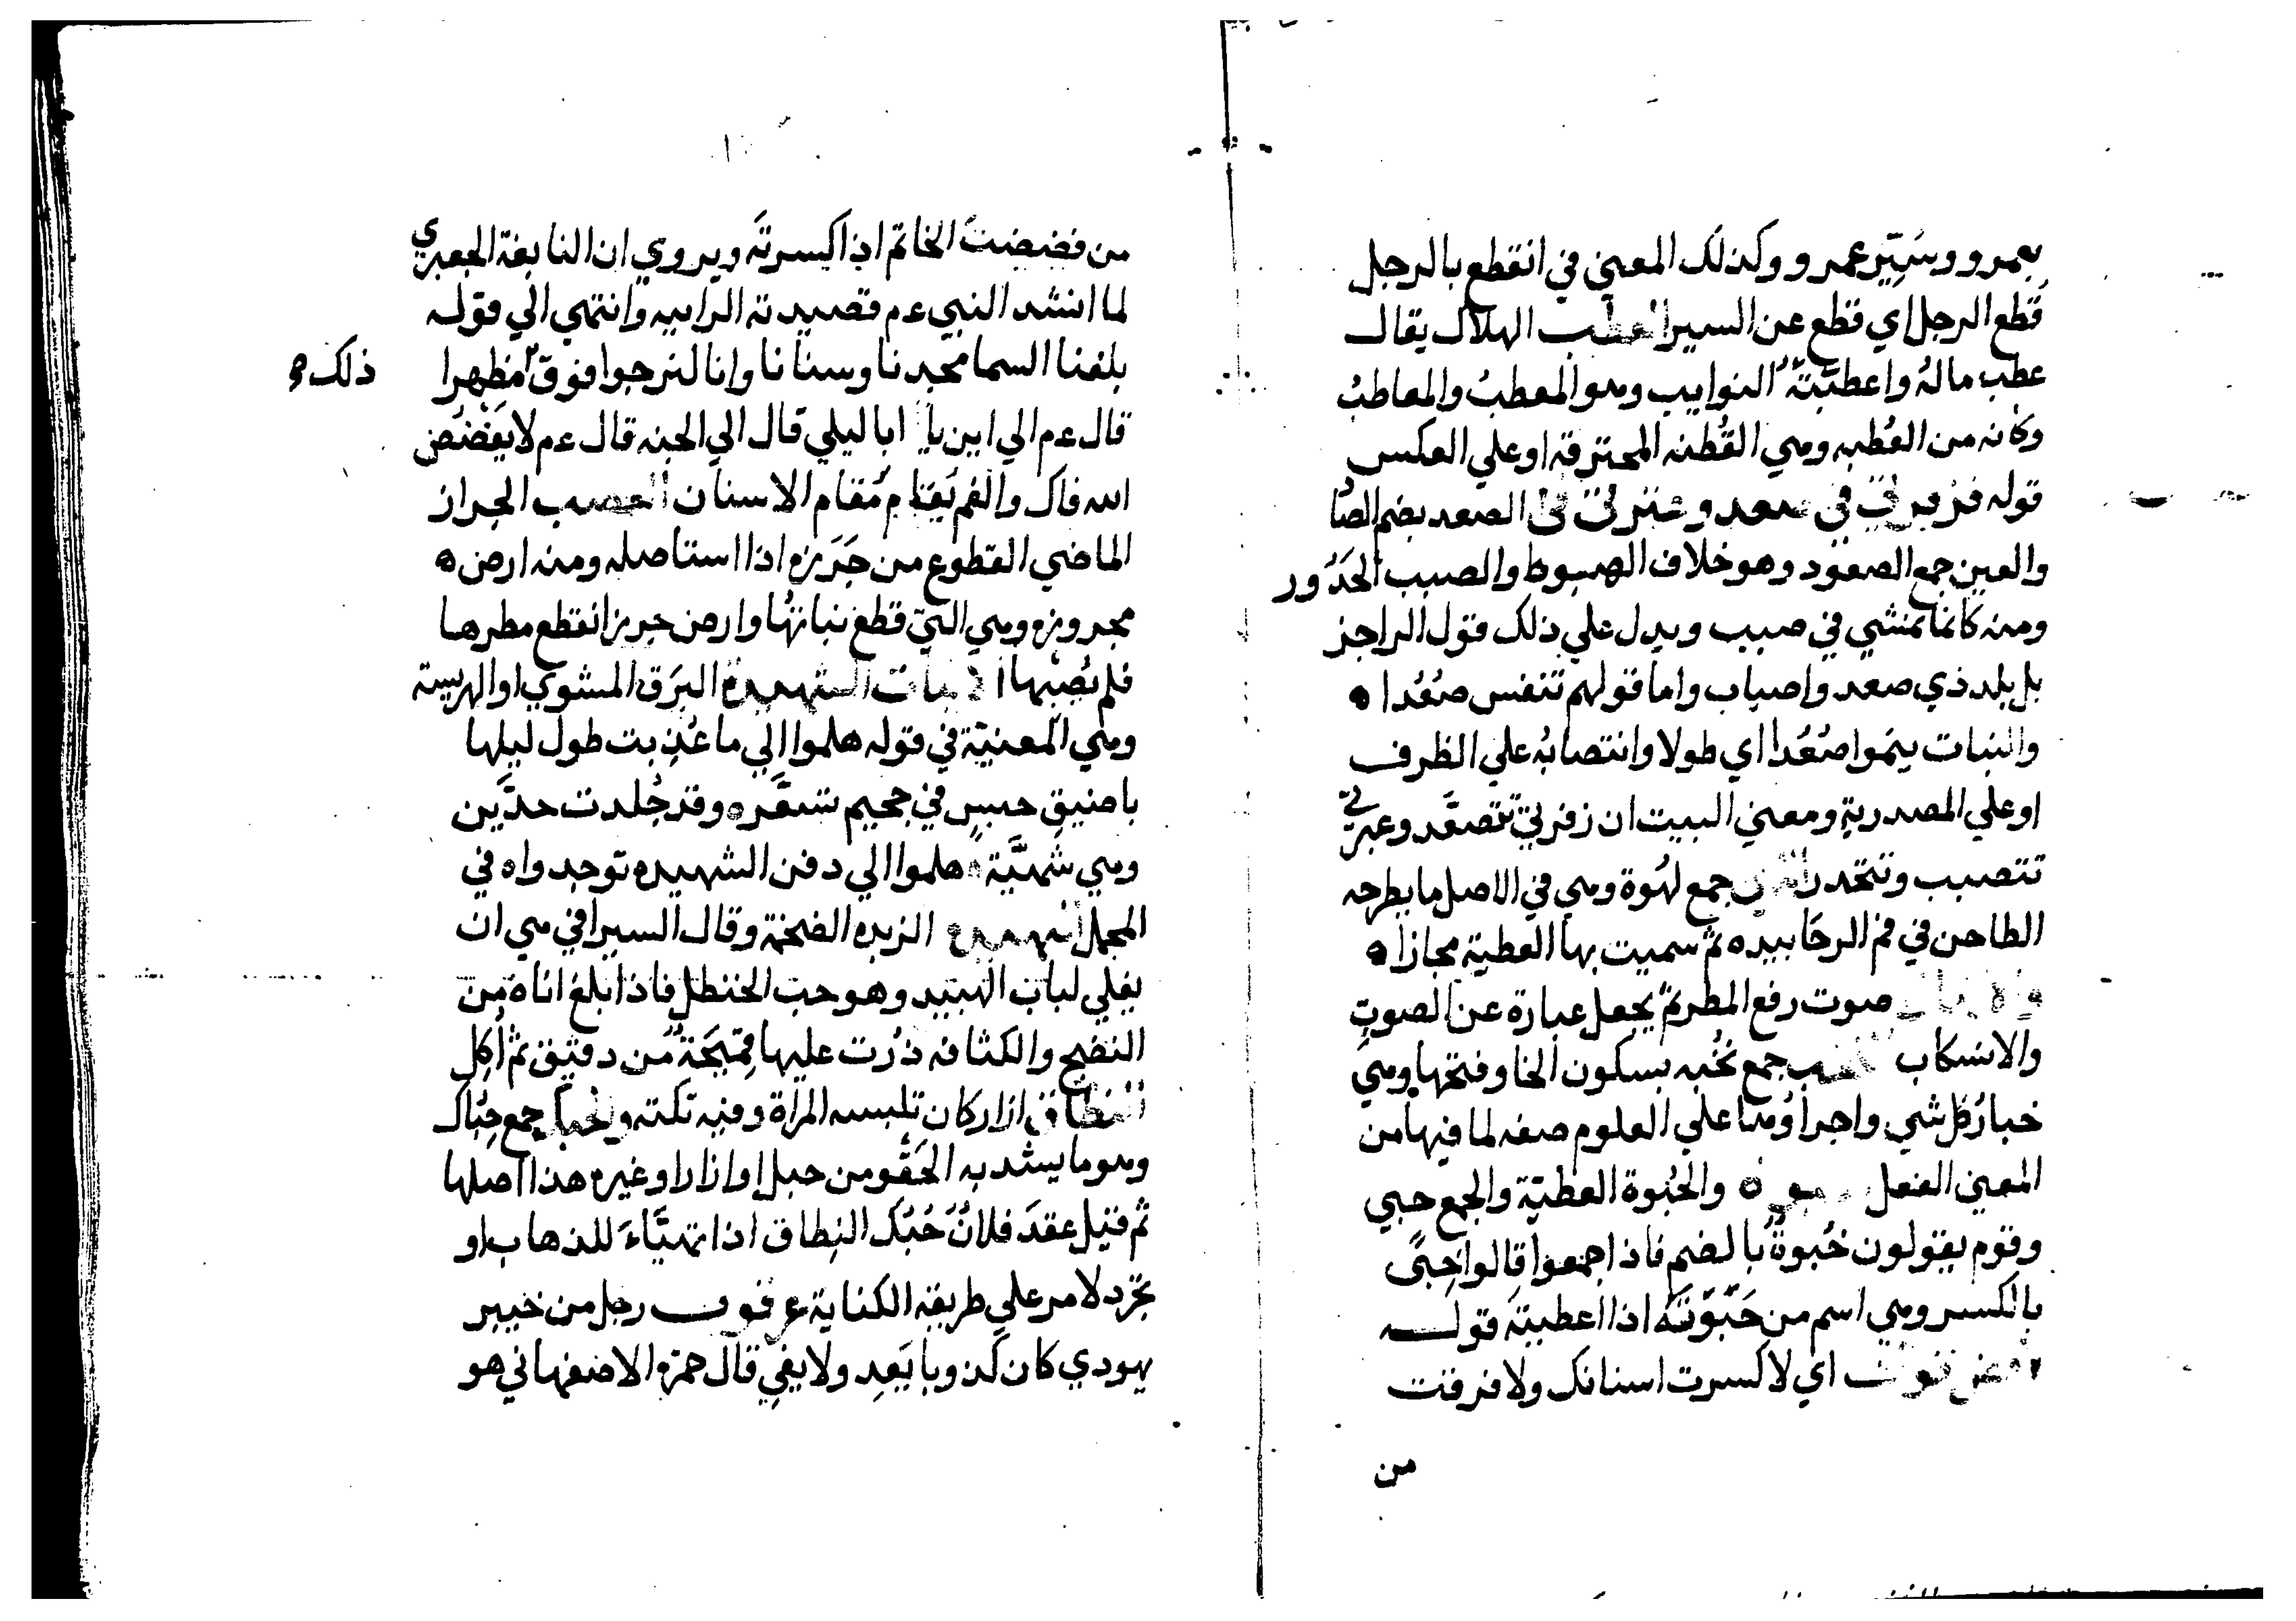 بعمرو وسُيِّر عمرو وكذلك المعني في انقطع بالرجل
قُطع الرجل اي قطع عن السير العطب الهلاك يقال
عطب مالهُ واعطبَتْهُ النوايب وهو المعطبُ والمعاطبُ
وكانه من العُطبه وهي القُطنه المحترقه او علي العكس
قوله فزفيرتي في صعد وعبرتي في الصعد بضم الصا
والعين جمع الصعود وهو خلاف الهبوط والصبب الحَدُور
ومنه كانما تمشي في صبب ويدل علي ذلك قول الراجز
بل بلد ذي صعد واصباب واما قولهم تنفس صُعُدا ه
والنبات ينموا صُعُدا اي طولا وانتصابهُ علي الظرف
او علي المصدرية ومعني البيت ان زفرتي تتصعَّد وعبرتي
تتصبب وتتحدر جمع لهُوة وهي في الاصل ما يطرحه
الطاحن في فم الرحا بيده ثم سميت بها العطية مجازا ه
صوت رفع المطر ثم يجعل عبارة عن الصوت
والانسكاب جمع نُخبه بسكون الخا وفتحها وهي
خيارُ كل شي واجراوُها علي العلوم صفه لما فيها من
المعني الفعل والحُبوة العطيّة والجمع حبي
وقوم يقولون حُبوةٌ بالضم فاذا جمعوا قالوا حِبًى
بالكسر وهي اسم من حَبَوْتَهُ اذا اعطيتهَ قولـــه
اي لا كسرت اسنانك ولا فرقت
من
من فضضتَ الخاتم اذا كسرتهَ ويروي ان النابغة الجعدي
لما انشد النبي عم قصيدته الراييه وانتهي الي قوله
بلغنا السما مجدنا وسنانا وانا لنرجوا فوق مَظهرا
ذلك
قال عم الي اين يا ابا ليلي قال الي الجنه قال عم لا يَفضُض
الله فاك والفم يُقام مُقام الاسنان العضب الجراز
الماضي القطوع من جَرَزه اذا استاصله ومنه ارض ه
مجروزه وهي التي قطع نباتُها وارض جرز انقطع مطرها
فلم يُصبها البَرَق المشوي او الهريسة
وهي المعنيّة في قوله هلموا الي ما عُذِبت طول ليلها
باضيق حبسٍ في جحيم تسعَّر ه وقد جُلدت حدَّين
وهي شهيَّةٌ هلموا الي دفن الشهيده توجدوا ه في
المجمل الزبده الضخمة وقال السيرافي هي ان
يغلي لباب الهبيد وهو حب الحنظل فاذا بلغ اناه من
النضج والكثافه ذُرت عليها قُمَيْحَةٌ من دقيق ثم اُكل
النطاق ازار كان تلبسه المراة وفيه تكته جمع حِبُاك
وهو ما يشد به الحَقْو من حبل او ازار او غيره هذا اصلها
ثم قيل عقدَ فلانٌ حُبُكَ النِطاق اذا تهيَّاءَ للذهاب او
تجرّد لامر علي طريقه الكناية عرقوب رجل من خيبر
يهودي كان كذوبا يَعِد ولا يفي قال حمزه الاصفهاني هو